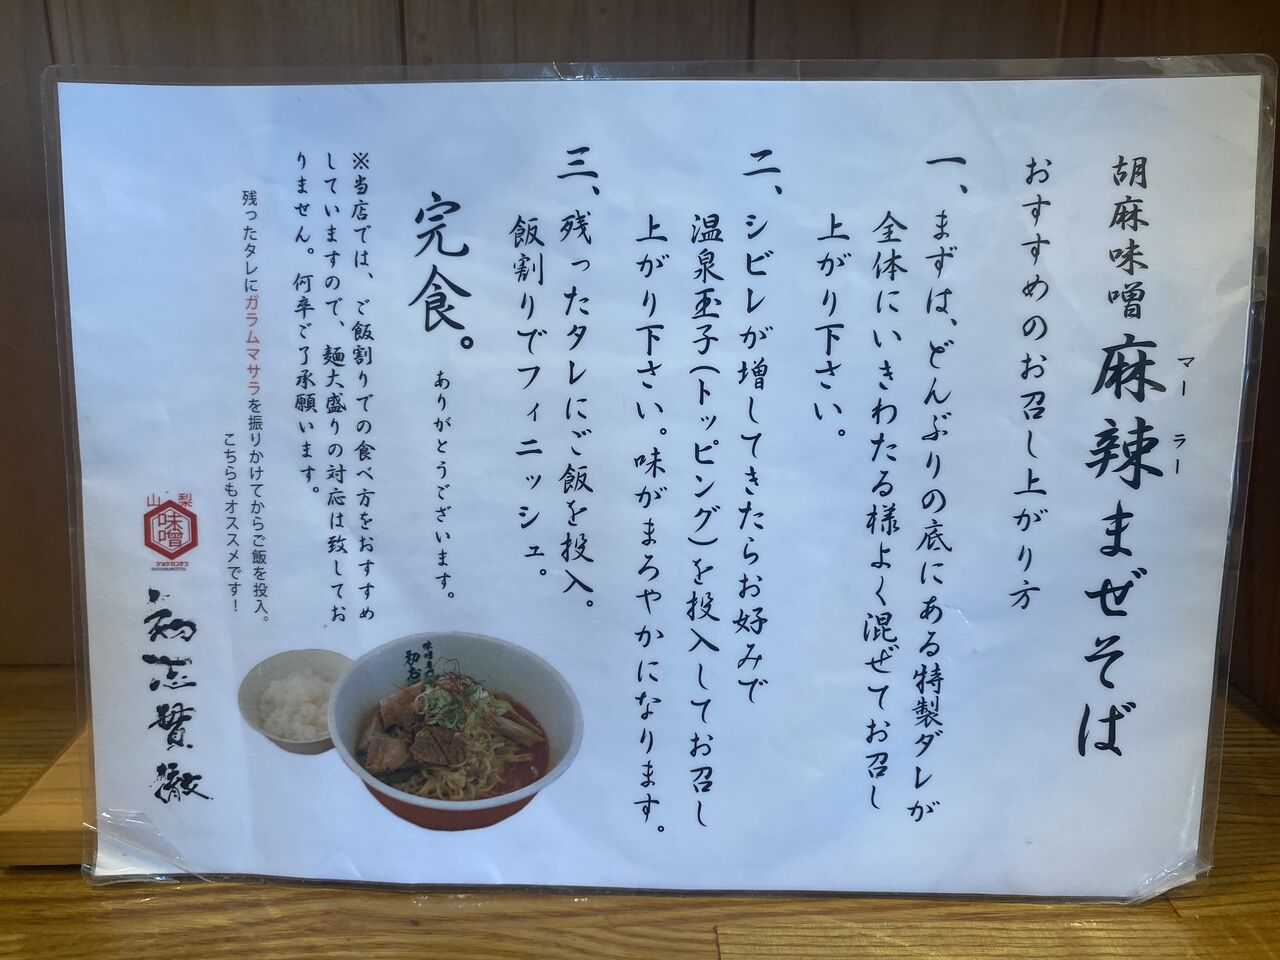 胡麻味噌麻辣まぜそば
マーラー
おすすめのお召し上がり方
一、まずは、どんぶりの底にある特製ダレが
全体にいきわたる様よく混ぜてお召し
上がり下さい。
二、シビレが増してきたらお好みで
温泉玉子(トッピング)を投入してお召し
上がり下さい。味がまろやかになります。
三、残ったタレにご飯を投入。
飯割りでフィニッシュ。
完食。ありがとうございます。
※当店では、ご飯割りでの食べ方をおすすめ
していますので、麺大盛りの対応は致してお
りません。何卒ご了承願います。
残ったタレにガラムマサラを振りかけてからご飯を投入。
こちらもオススメです!
山梨
味噌
ショシカンテツ
SHOSHIKANTETSU
初志貫徹